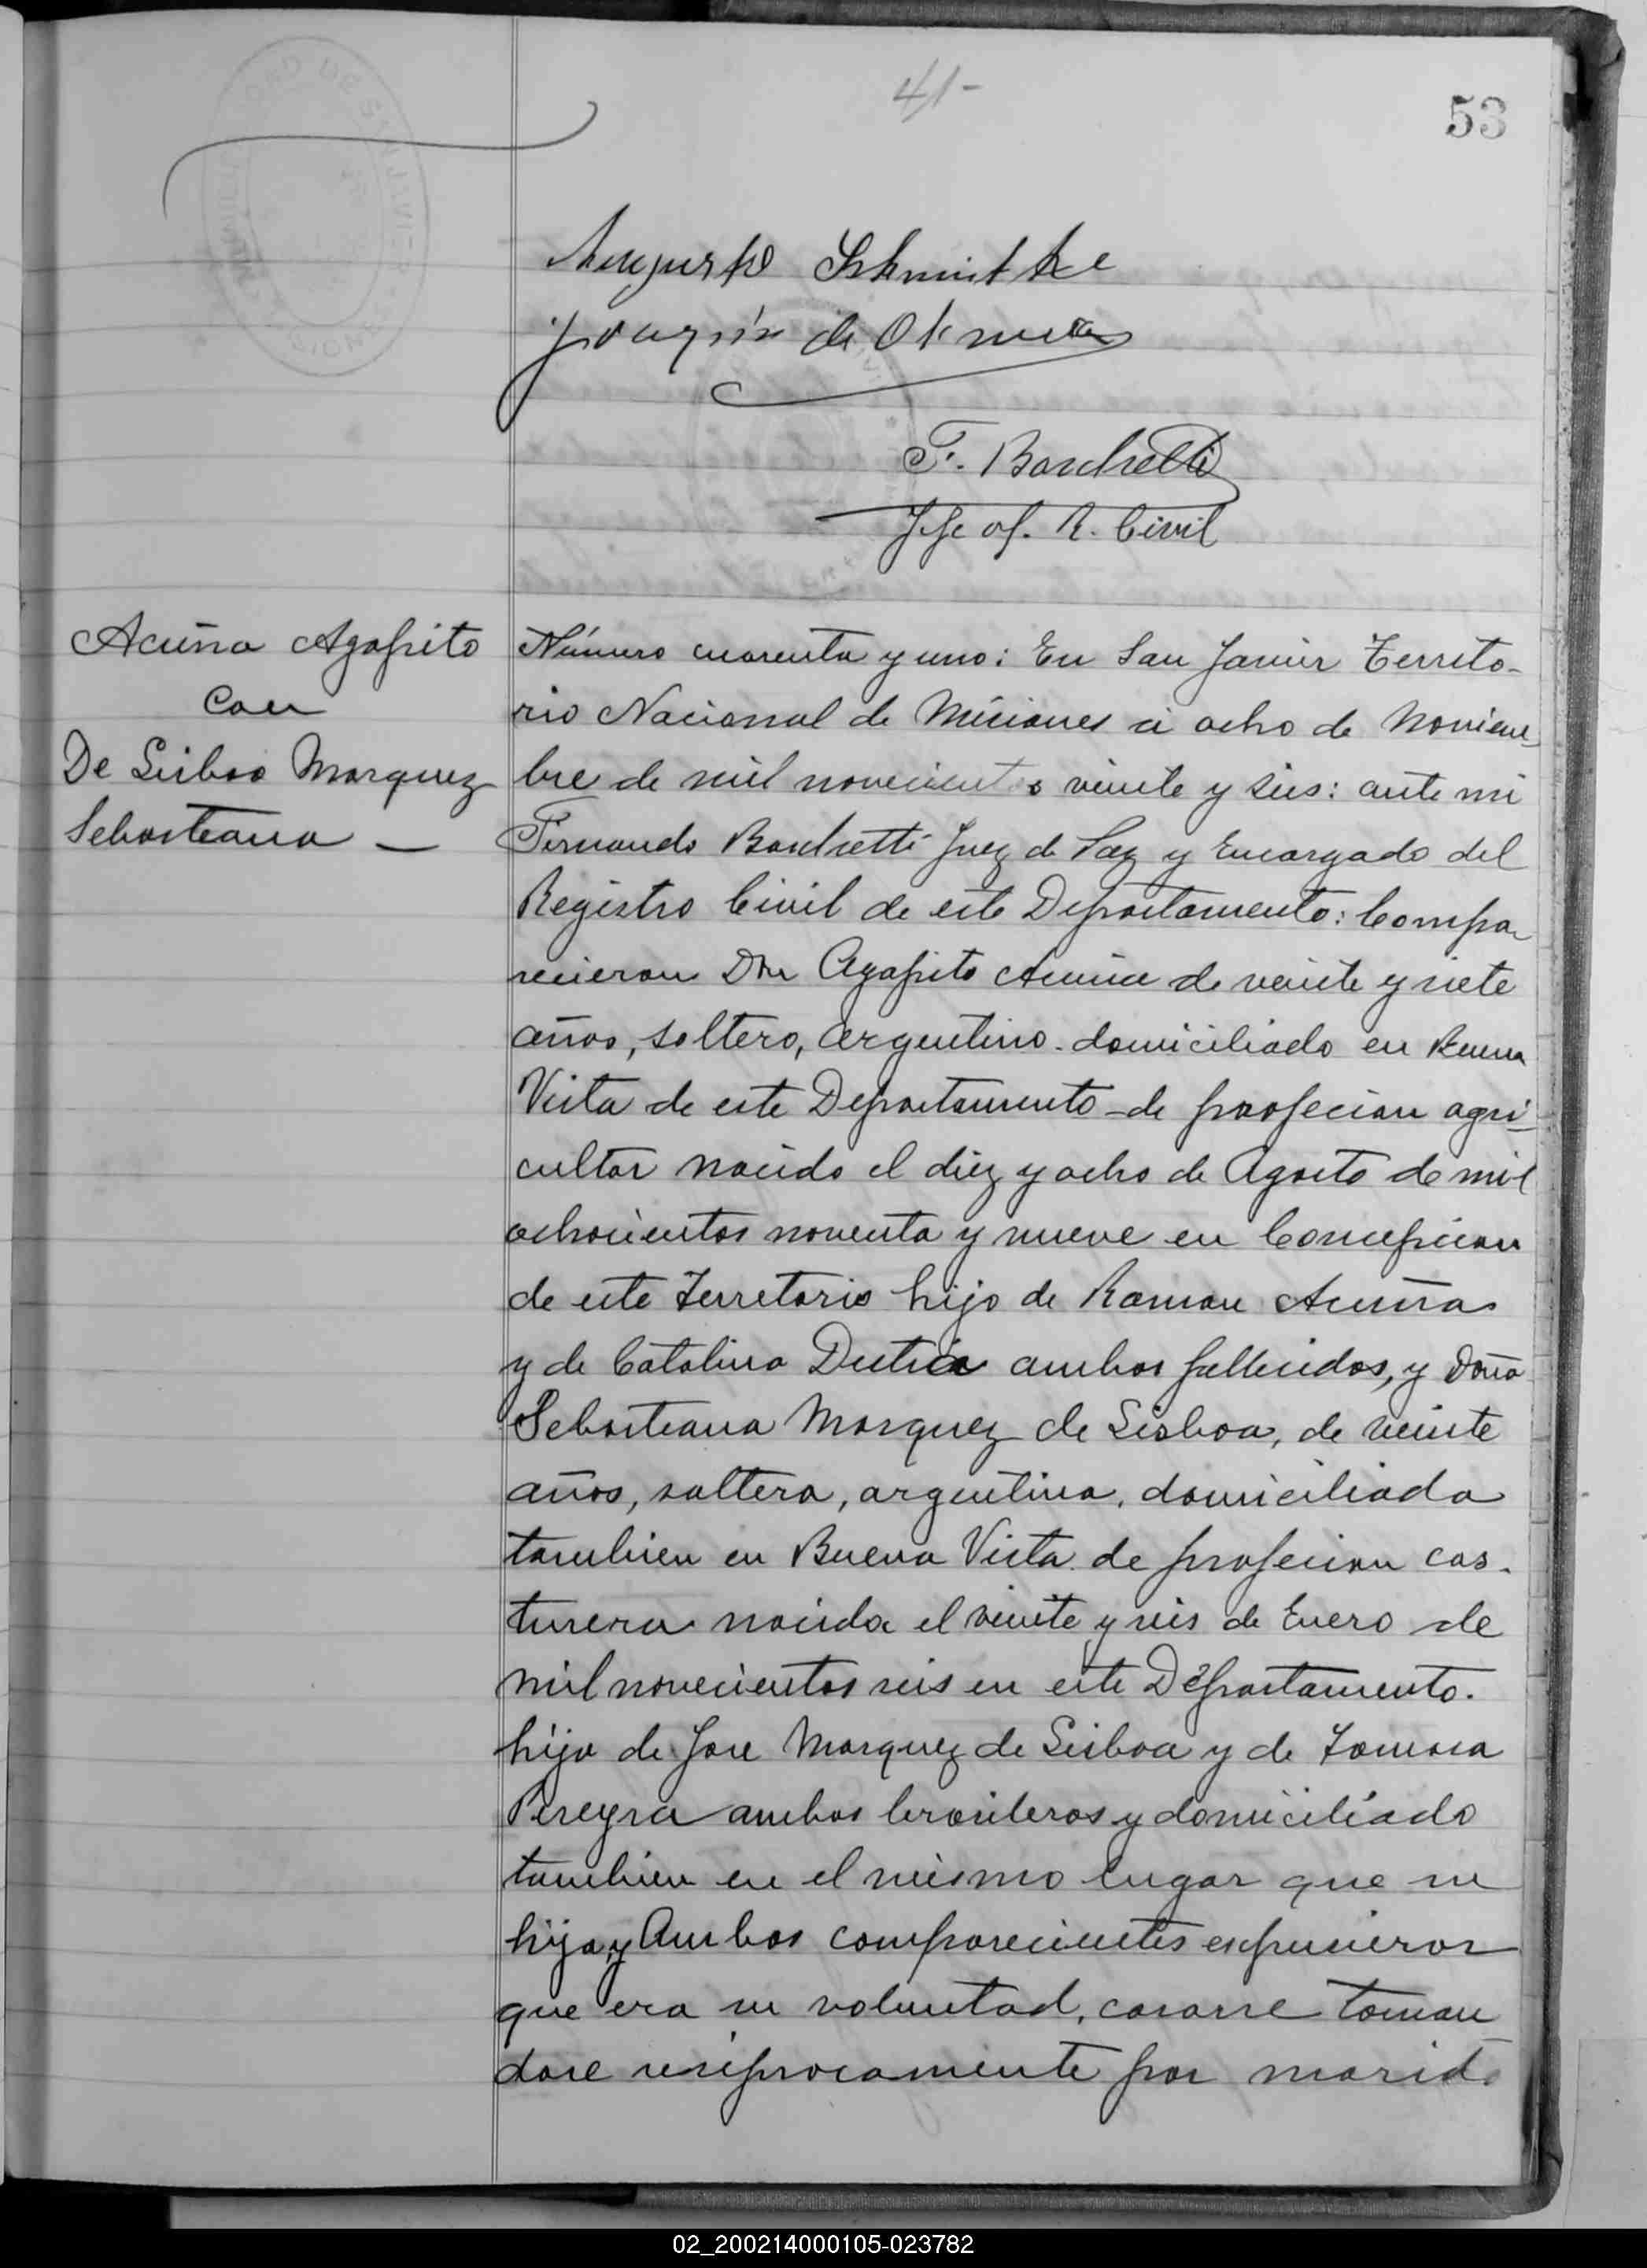 41-
53
Augusto Schmittke
Joaquín de Olivera
F. Bacchetti
Jefe of. R. Civil
Acuña Agapito
con
De Lisboa Marquez
Sebasteana —
Número cuarenta y uno: En San Javier Territo-
rio Nacional de Misiones á ocho de Noviem-
bre de mil novecientos veinte y seis: ante mi
Fernando Juez de Paz y Encargado del
Registro Civil de este Departamento: Compa-
recieron Dn Agapito Acuña de veinte y siete
años, soltero, argentino. domiciliado en Buena
Vista de este Departamento - de profecion agri-
cultor nacido el diez y ocho de Agosto de mil
ochocientos noventa y nueve en Concepcion
de este Territorio hijo de Ramon Acuña
y de Catalina Dutra ambos fallecidos, y Doña
Sebasteana Marquez de Lisboa, de veinte
años, soltera, argentina, domiciliada
tambien en Buena Vista de profecion cos-
turera nacida el veinte y seis de Enero de
mil novecientos seis en este Departamento.
hija de Jose Marquez de Lisboa y de Tomasa
Pereyra ambos brasileros y domiciliado
tambien en el mismo lugar que su
hija, y Ambos comparecientes expusieron
que era su voluntad, casarse toman
dose resiprocamente por marido
02_200214000105-023782